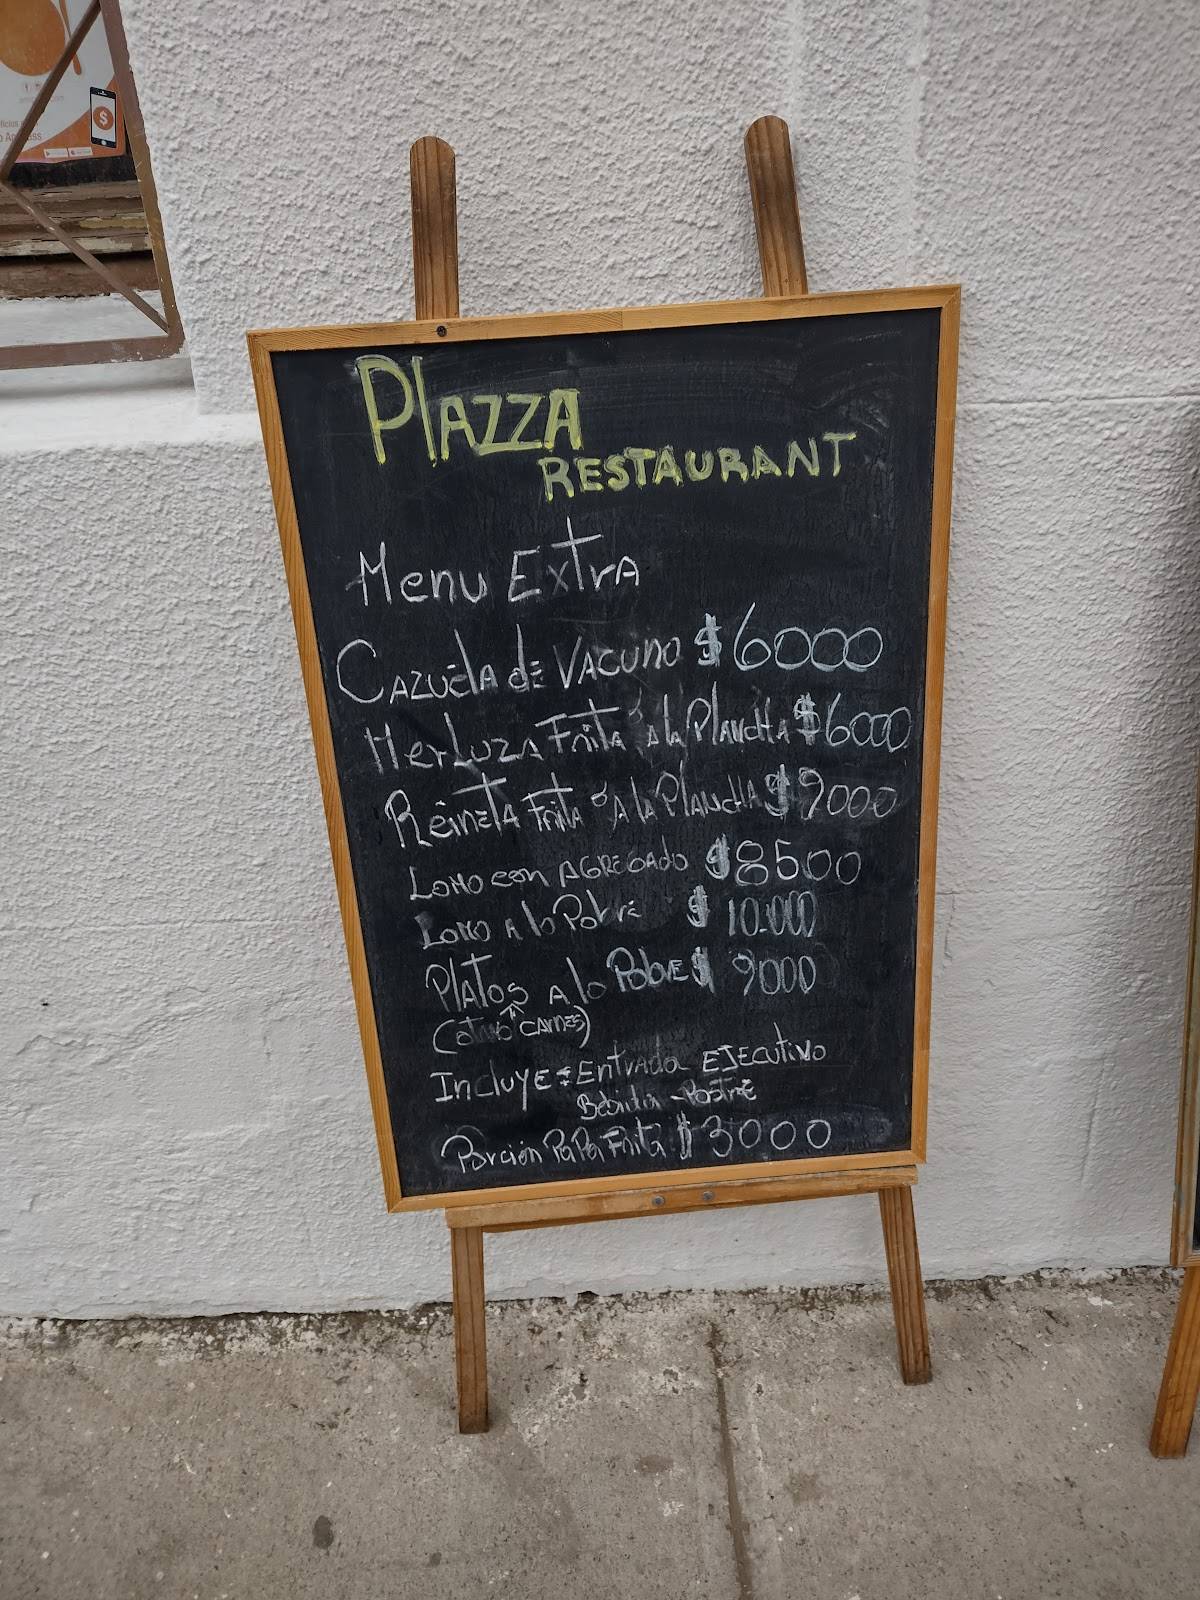 PlAZZA
RESTAURANT
Menu Extra
Cazuela de Vacuno $6000
Merluza Frita ó a la Plancha $6000
Reineta Frita ó a la Plancha $9000
Lomo con Agregado $8500
Lomo a lo Pobre $10.000
Platos a lo Pobre $9000
(otras carnes)
Incluye = Entrada Ejecutivo
Bebida - Postre
Porción Papa Frita $3000
$